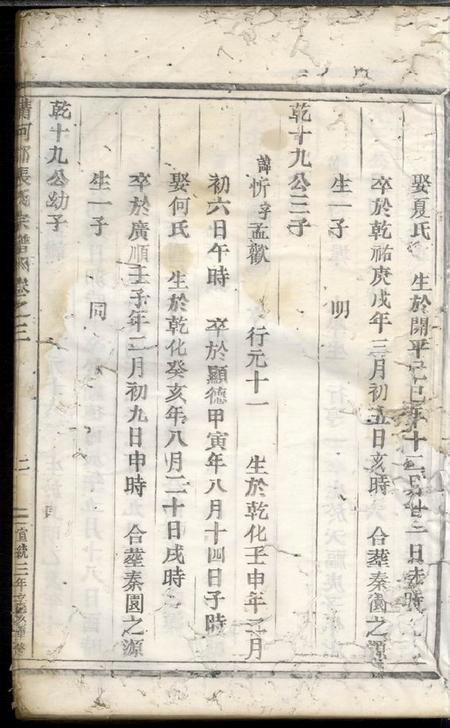 娶夏氏　生於開平己巳年十二月廿二日未時
卒於乾祐庚戌年三月初五日亥時　合葬秦園之源
生一子　明
乾十九公三子
諱忻字孟歡　行元十一　生於乾化壬申年二月
初六日午時　卒於顯德甲寅年八月十四日子時
娶何氏　生於乾化癸亥年八月二十日戌時
卒於廣順壬子年二月初九日申時　合葬秦園之源
生一子　同
乾十九公幼子
清河郡張氏宗譜 卷之三　二　宣統三年辛亥重修